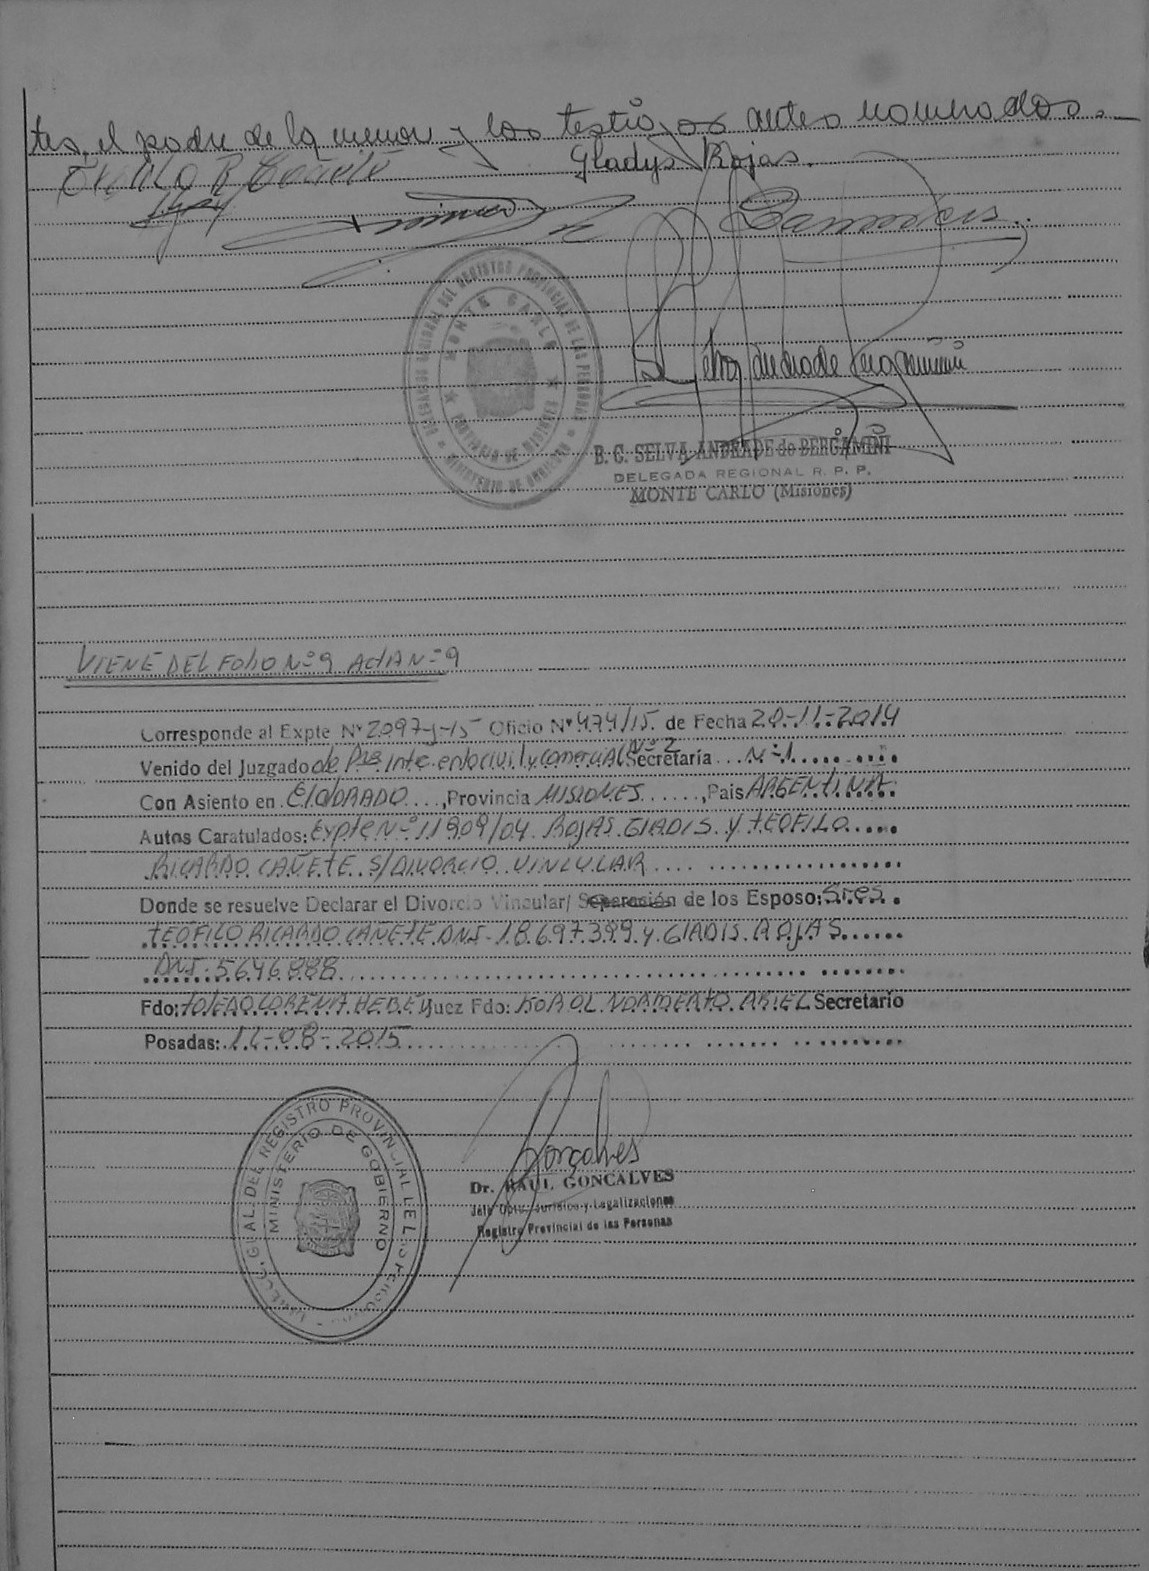 tes, el padre de la menor y los testigos antes nominados.
Gladys Rojas.
DELEGACION REGIONAL DEL REGISTRO PROVINCIAL DE LAS PERSONAS
MINISTERIO DE GOBIERNO
MONTE CARLO
PROVINCIA DE MISIONES
B. C. SELVA ANDRADE de BERGAMINI
DELEGADA REGIONAL R. P. P.
MONTE CARLO (Misiones)
VIENE DEL FOLIO Nº 9 ACTA Nº 9
Corresponde al Expte Nº 2097-J-15 Oficio Nº 474/15 de Fecha 20-11-2014
Venido del Juzgado de Pra Inte. en lo civil y comercial Nº 2 Secretaría Nº 1
Con Asiento en ElDORADO, Provincia MISIONES, Pais ARGENTINA
Autos Caratulados: Expte Nº 11909/04 ROJAS GLADIS Y TEOFILO
RICARDO CAÑETE S/DIVORCIO VINCULAR
Donde se resuelve Declarar el Divorcio Vincular/ Separación de los Esposo: Sres
TEOFILO RICARDO CAÑETE DNI-18.697.399 y GLADIS ROJAS
DNI: 5646888
Fdo: TOLEDO LORENA HEBE Juez Fdo: KOROL NORMERTO ARIEL Secretario
Posadas: 12-08-2015
Goncalves
Dr. RAUL GONCALVES
Jefe Dpto. Jurídico y Legalizaciones
Registro Provincial de las Personas
DIRECC. GRAL. DEL REGISTRO PROVINCIAL DE LAS PERSONAS
MINISTERIO DE GOBIERNO